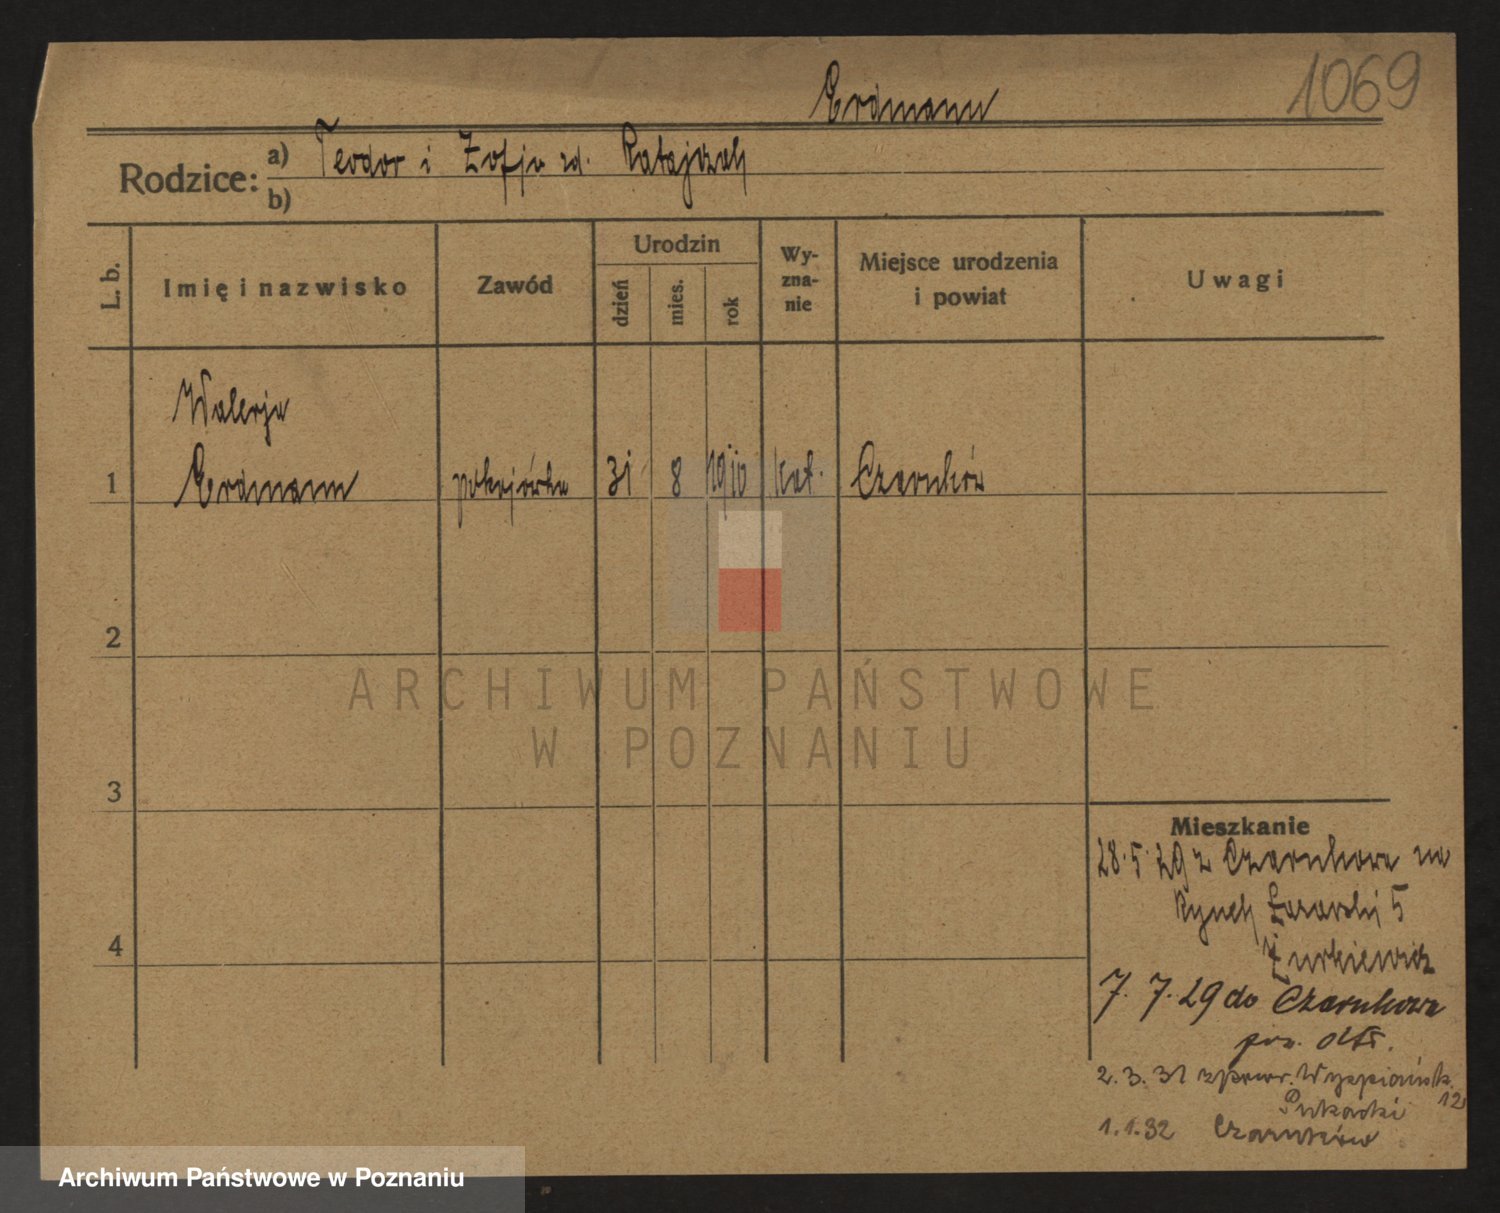 1069
Erdmann
Rodzice:
a) Teodor i Zofja zd. Ratajczak
b)
L. b.
Imię i nazwisko
Zawód
Urodzin
dzień
mies.
rok
Wy-
zna-
nie
Miejsce urodzenia
i powiat
Uwagi
Walerja
1 Erdmann pokojówka 31 8 1910 kat. Czarnków
2
3
4
Mieszkanie
28.5.29 z Czarnkowa na
Rynek Łazarski 5
Żurkiewicz
7.7.29 do Czarnkowa
2.3.31 Wyspiańsk. 12
1.1.32 Czarnków
ARCHIWUM PAŃSTWOWE
W POZNANIU
Archiwum Państwowe w Poznaniu